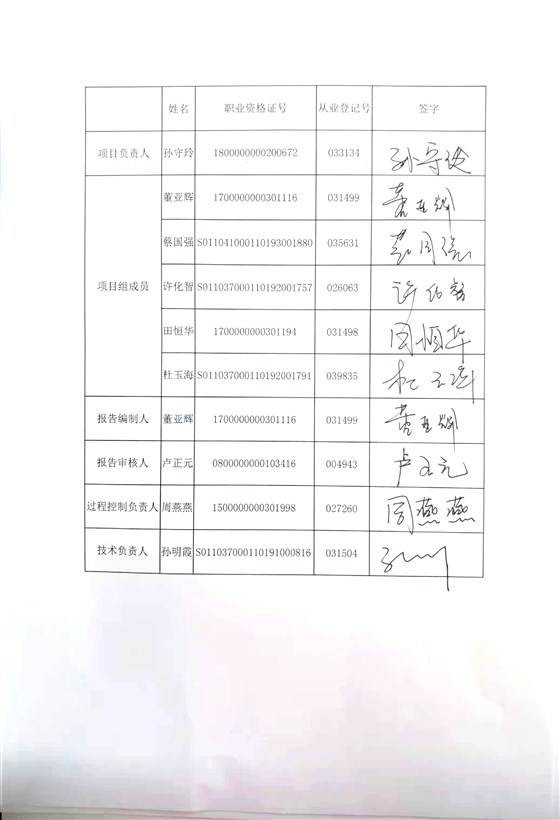 姓名 职业资格证号 从业登记号 签字
项目负责人 孙守玲 1800000000200672 033134 孙守玲
项目组成员 董亚辉 1700000000301116 031499 董亚辉
蔡国强 S011041000110193001880 035631 蔡国强
许化智 S011037000110192001757 026063 许化智
田恒华 1700000000301194 031498 田恒华
杜玉海 S011037000110192001791 039835 杜玉海
报告编制人 董亚辉 1700000000301116 031499 董亚辉
报告审核人 卢正元 0800000000103416 004943 卢正元
过程控制负责人 周燕燕 1500000000301998 027260 周燕燕
技术负责人 孙明霞 S011037000110191000816 031504